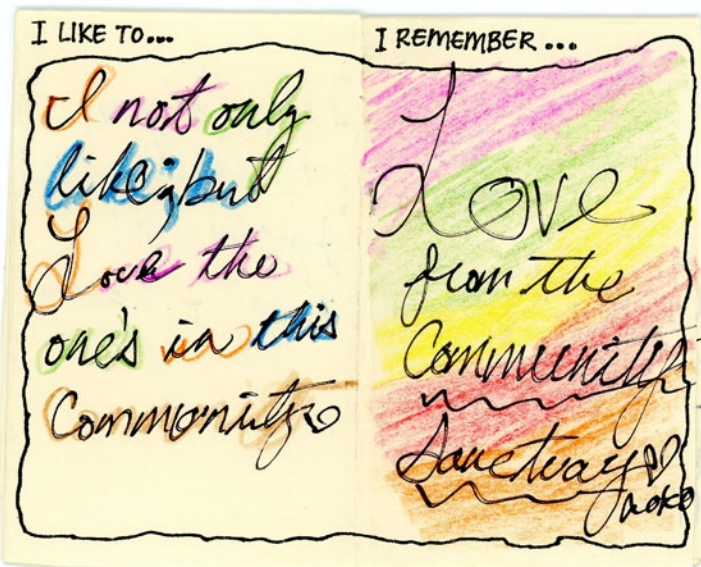 I LIKE TO...
I not only
like; but
Love the
one's in this
Community
I REMEMBER...
Love
from the
Community
Sanctuary